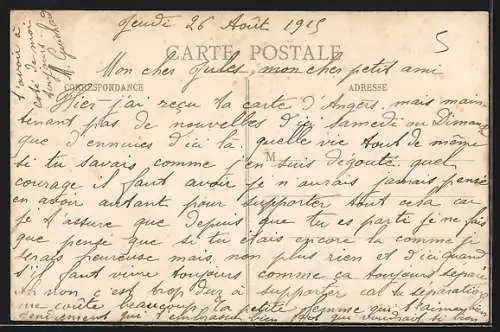 Jeudi 26 Août 1915
5
CARTE POSTALE
Mon cher Jules, mon cher petit ami
CORRESPONDANCE
ADRESSE
Hier j'ai reçu ta carte d'Angers, mais main
tenant pas de nouvelles d'ici samedi ou Dimanche
que d'ennuies d'ici là quelle vie tout de même
M
si tu savais comme j'en suis dégoutée quel
courage il faut avoir je n'aurais jamais pensé
en avoir autant pour supporter tout cela car
je t'assure que depuis que tu es parti je ne fais
que pense que si tu étais encore la comme je
serais heureuse mais, non plus rien et d'ici quand
s'il faut vivre toujours comme ça toujours séparé
Ah non c'est trop dur à supporter car ta séparation
me coûte beaucoup Ta petite femme qui t'aime bien
tendrement qui t'embrasse bien fort qui voudrait
t'avoir à
côté de moi
toujours